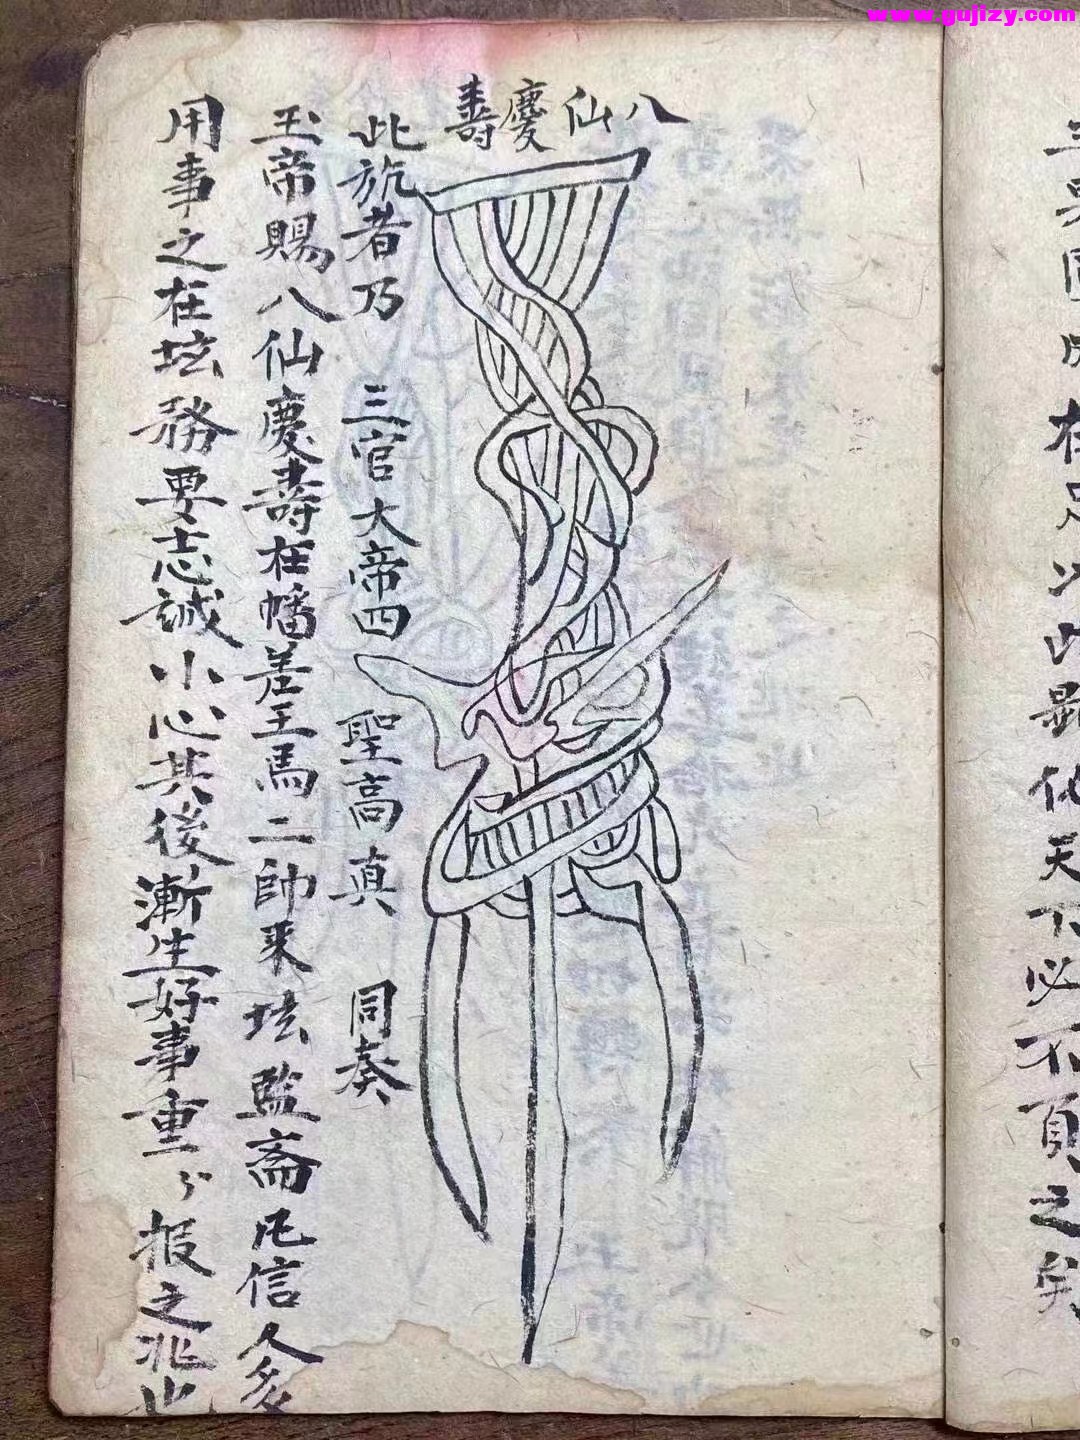 www.gujizy.com
八仙慶壽
此旂者乃 三官大帝四 聖高真 同奏
玉帝賜八仙慶壽在幡差王馬二帥來坛監斋凡信久多
用事之在坛務要志誠小心其後漸生好事重々报之兆也
在 此 化天下必不 之矣